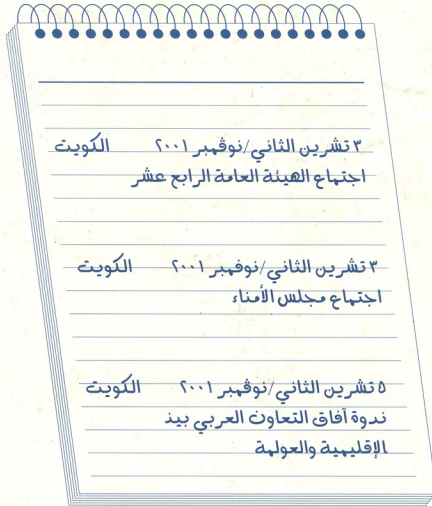 ٣ تشرين الثاني/نوفمبر ٢٠٠١ الكويت
اجتماع الهيئة العامة الرابع عشر
٣ تشرين الثاني/نوفمبر ٢٠٠١ الكويت
اجتماع مجلس الأمناء
٥ تشرين الثاني/نوفمبر ٢٠٠١ الكويت
ندوة آفاق التعاون العربي بين
الإقليمية والعولمة